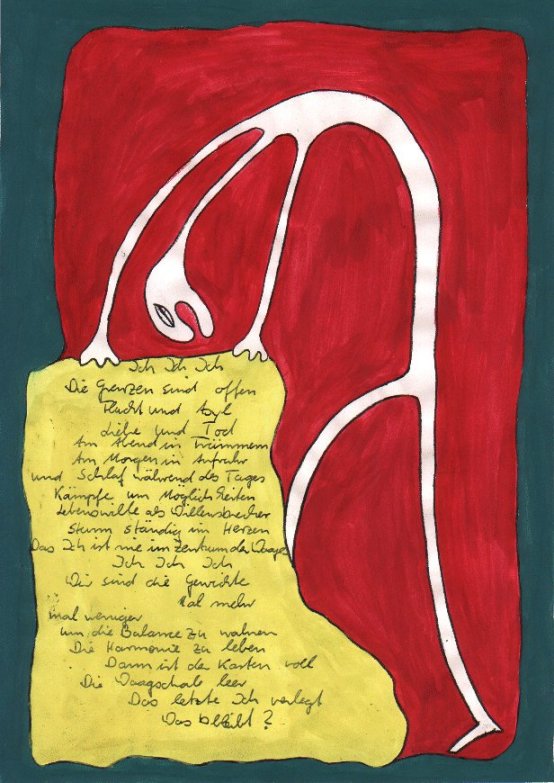 Ich Ich Ich
Die Grenzen sind offen
Flucht und Asyl
Liebe und Tod
Am Abend in Trümmern
Am Morgen in Aufruhr
und Schlaf während des Tages
Kämpfe um Möglichkeiten
Lebenswille als Willensbrecher
Sturm ständig im Herzen
Das Ich ist nie im Zentrum der Waage
Ich Ich Ich
Wir sind die Gewichte
Mal mehr
mal weniger
um die Balance zu wahren
Die Harmonie zu leben
Dann ist der Karten voll
Die Waagschale leer
Das letzte Ich verlegt
Was bleibt?